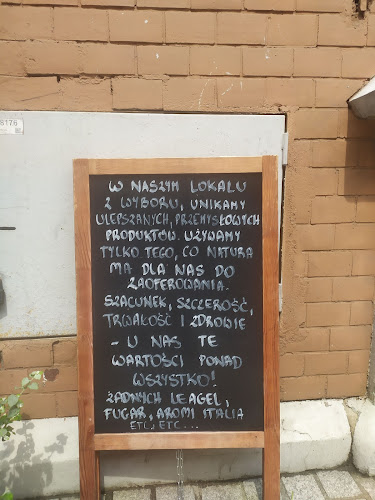 8176
W NASZYM LOKALU
Z WYBORU, UNIKAMY
ULEPSZANYCH, PRZEMYSŁOWYCH
PRODUKTÓW. UŻYWAMY
TYLKO TEGO, CO NATURA
MA DLA NAS DO
ZAOFEROWANIA.
SZACUNEK, SZCZEROŚĆ,
TRWAŁOŚĆ I ZDROWIE
- U NAS TE
WARTOŚCI PONAD
WSZYSTKO!
ŻADNYCH LEAGEL,
FUGAR, AROMI ITALIA
ETC, ETC...